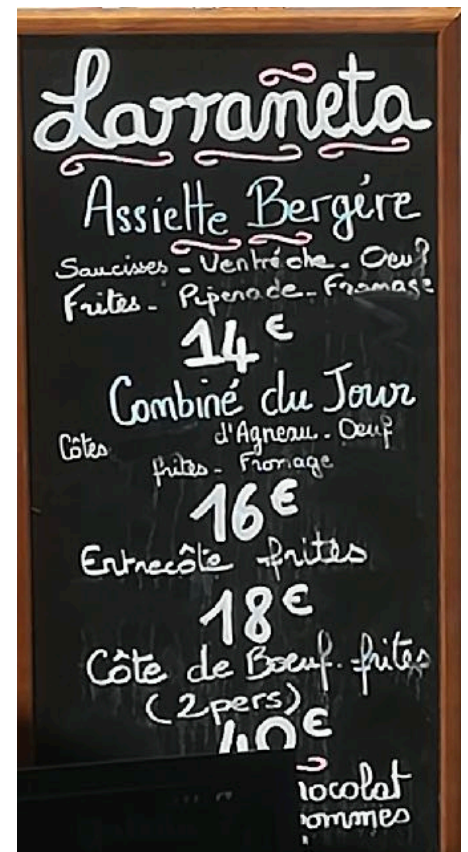 Larrañeta
Assiette Bergére
Saucisses - Ventréche - Oeuf
Frites - Piperade - Fromage
14€
Combiné du Jour
Côtes d'Agneau - Oeuf
frites - Fromage
16€
Entrecôte frites
18€
Côte de Boeuf - frites
(2pers)
40€